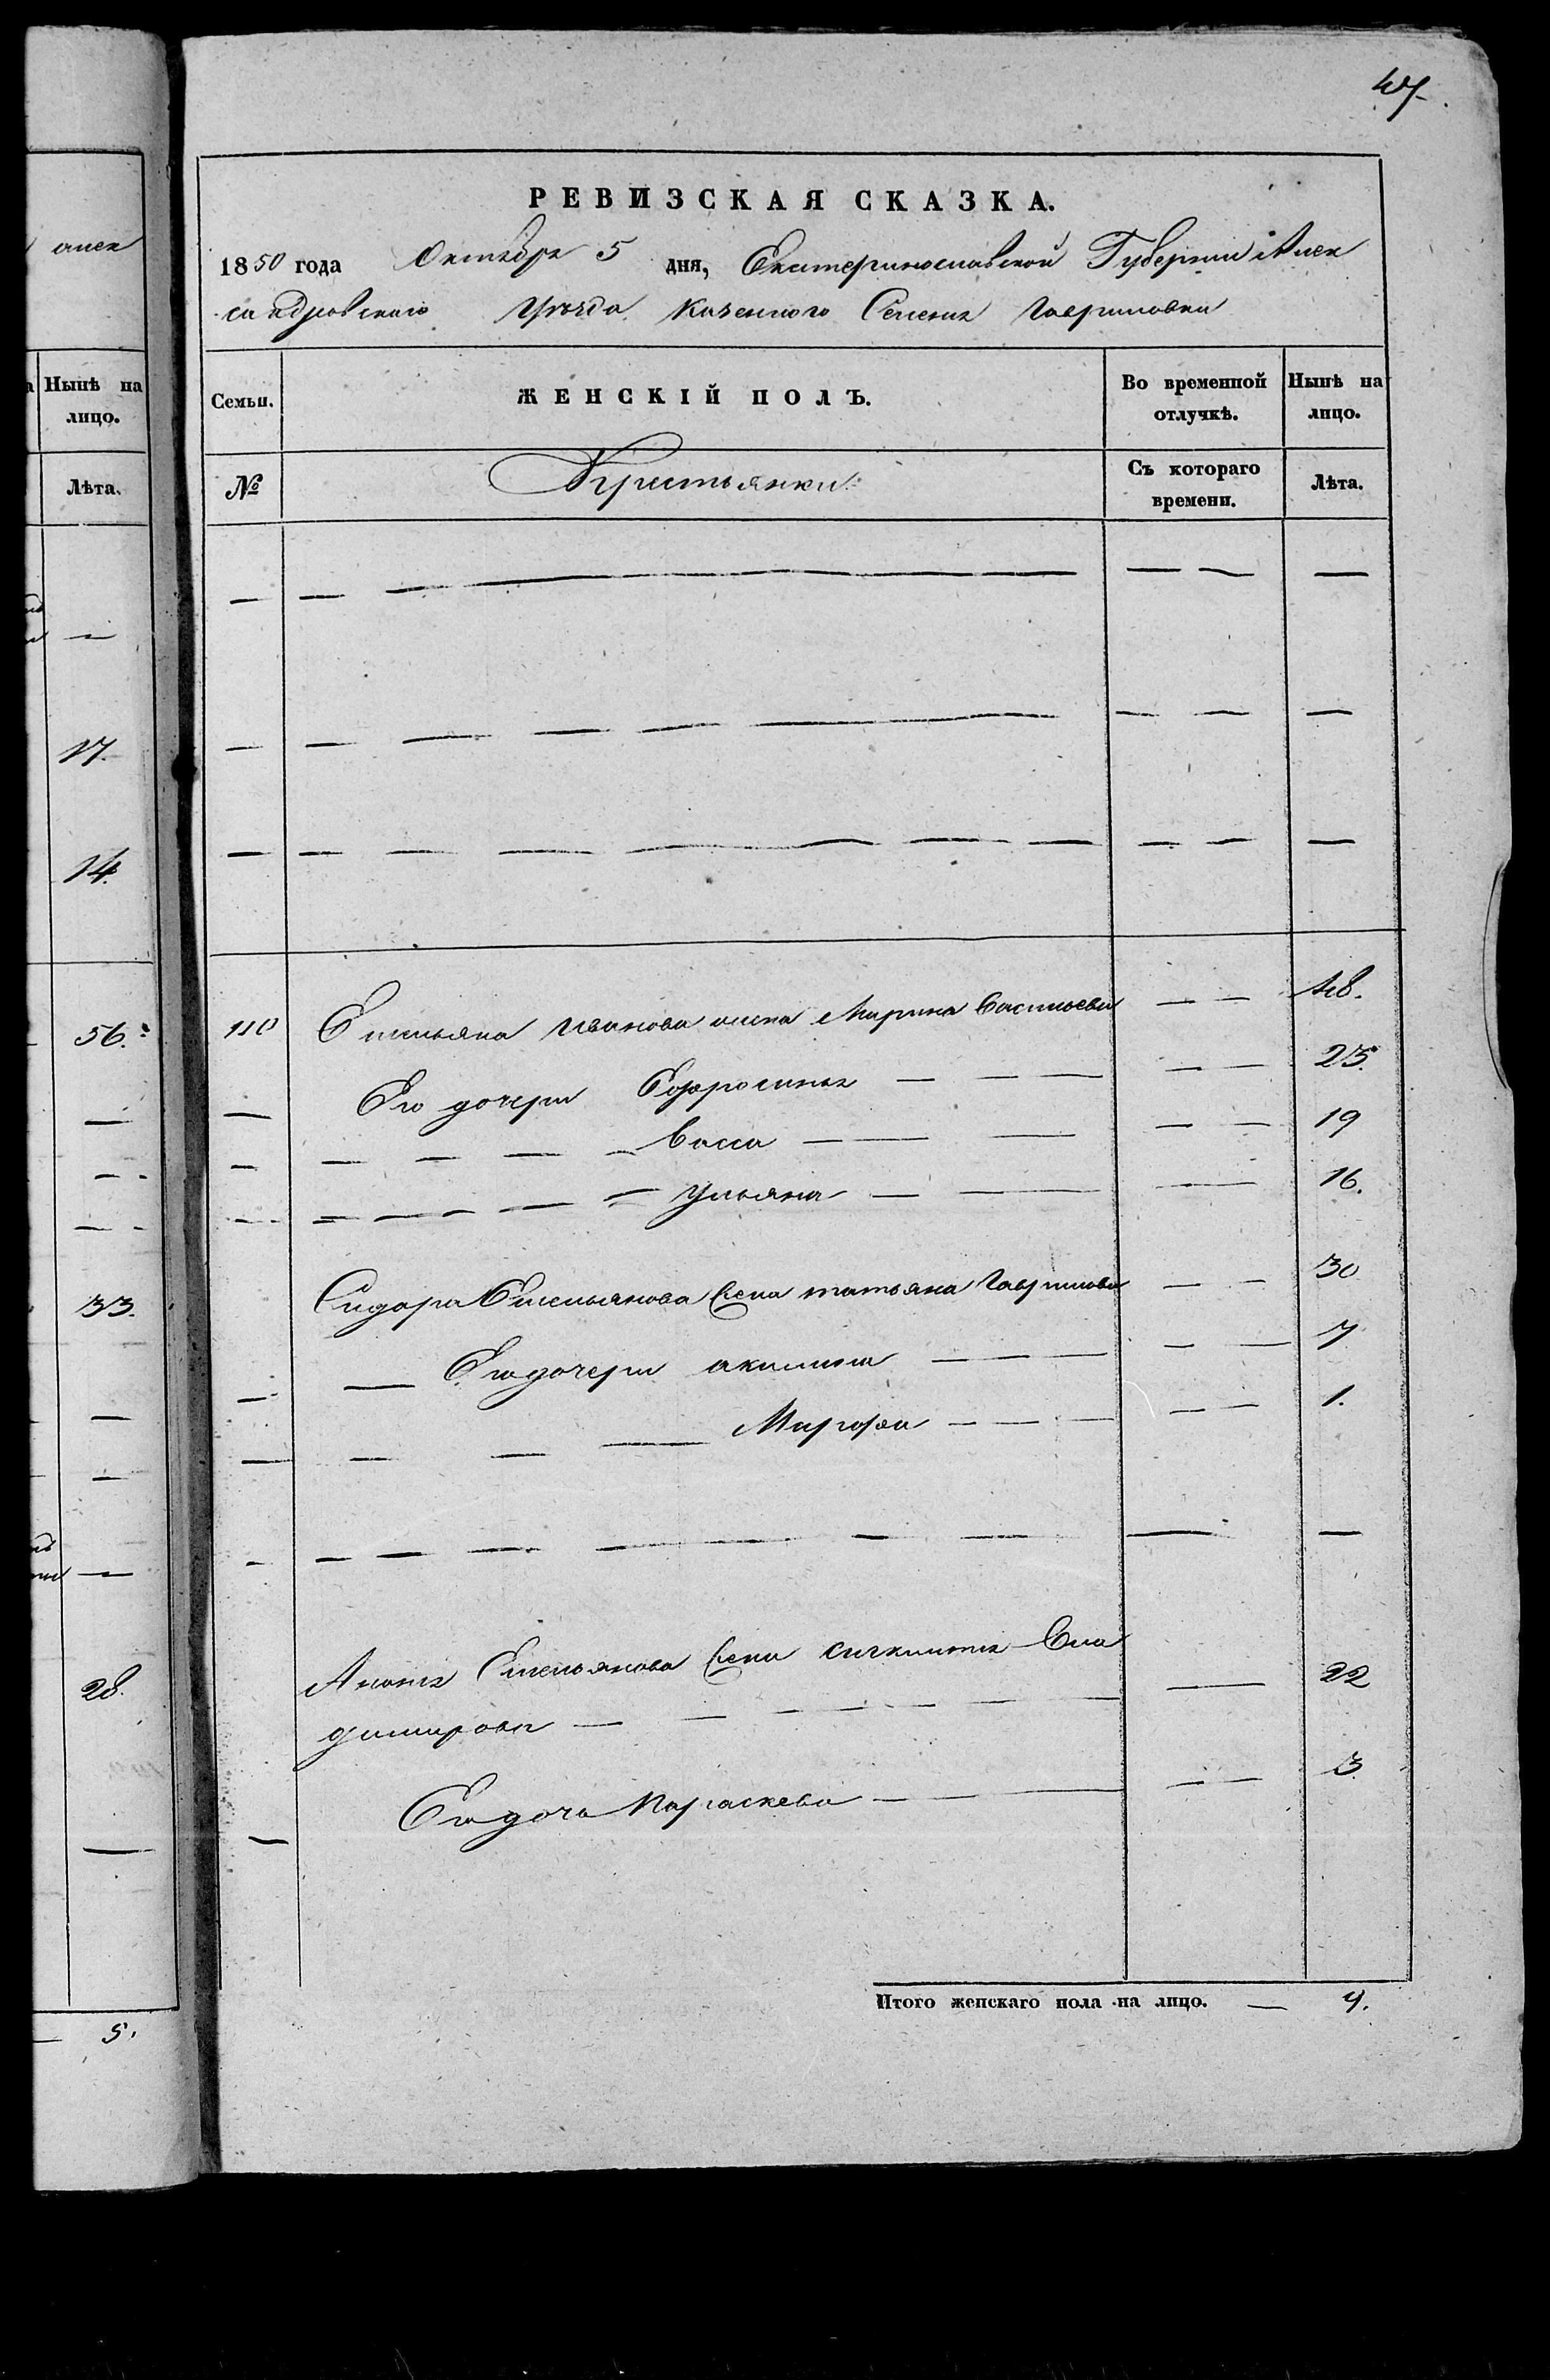 РЕВИЗСКАЯ СКАЗКА.
1850 года Октября 5 дня, Екатеринославской Губернии Алек
сандровского Уезда Казенного Селения Гавриловки
Нынѣ на лицо.
Лѣта.
17.
14.
56.
33.
28.
5.
Семьи. ЖЕНСКІЙ ПОЛЪ. Во временной отлучкѣ. Нынѣ на лицо.
№ Крестьянки Съ котораго времени. Лѣта.
110 Емельяна Иванова жена Марина Васильева — — 48.
Его дочери Ефросинья — — — — — 25.
— — — — — Васса — — — — 19
— — — — — Ульяна — — — 16.
Сидора Емельянова жена татьяна Гаврилова — — 30
— Его дочери акилина — — — — — 7
— — — Марфа — — — — — 1.
Емельянова жена Вла
димирова — — — — — — — 22
Его дочь Параскева — — — — — 3.
Итого женскаго пола на лицо. — 9.